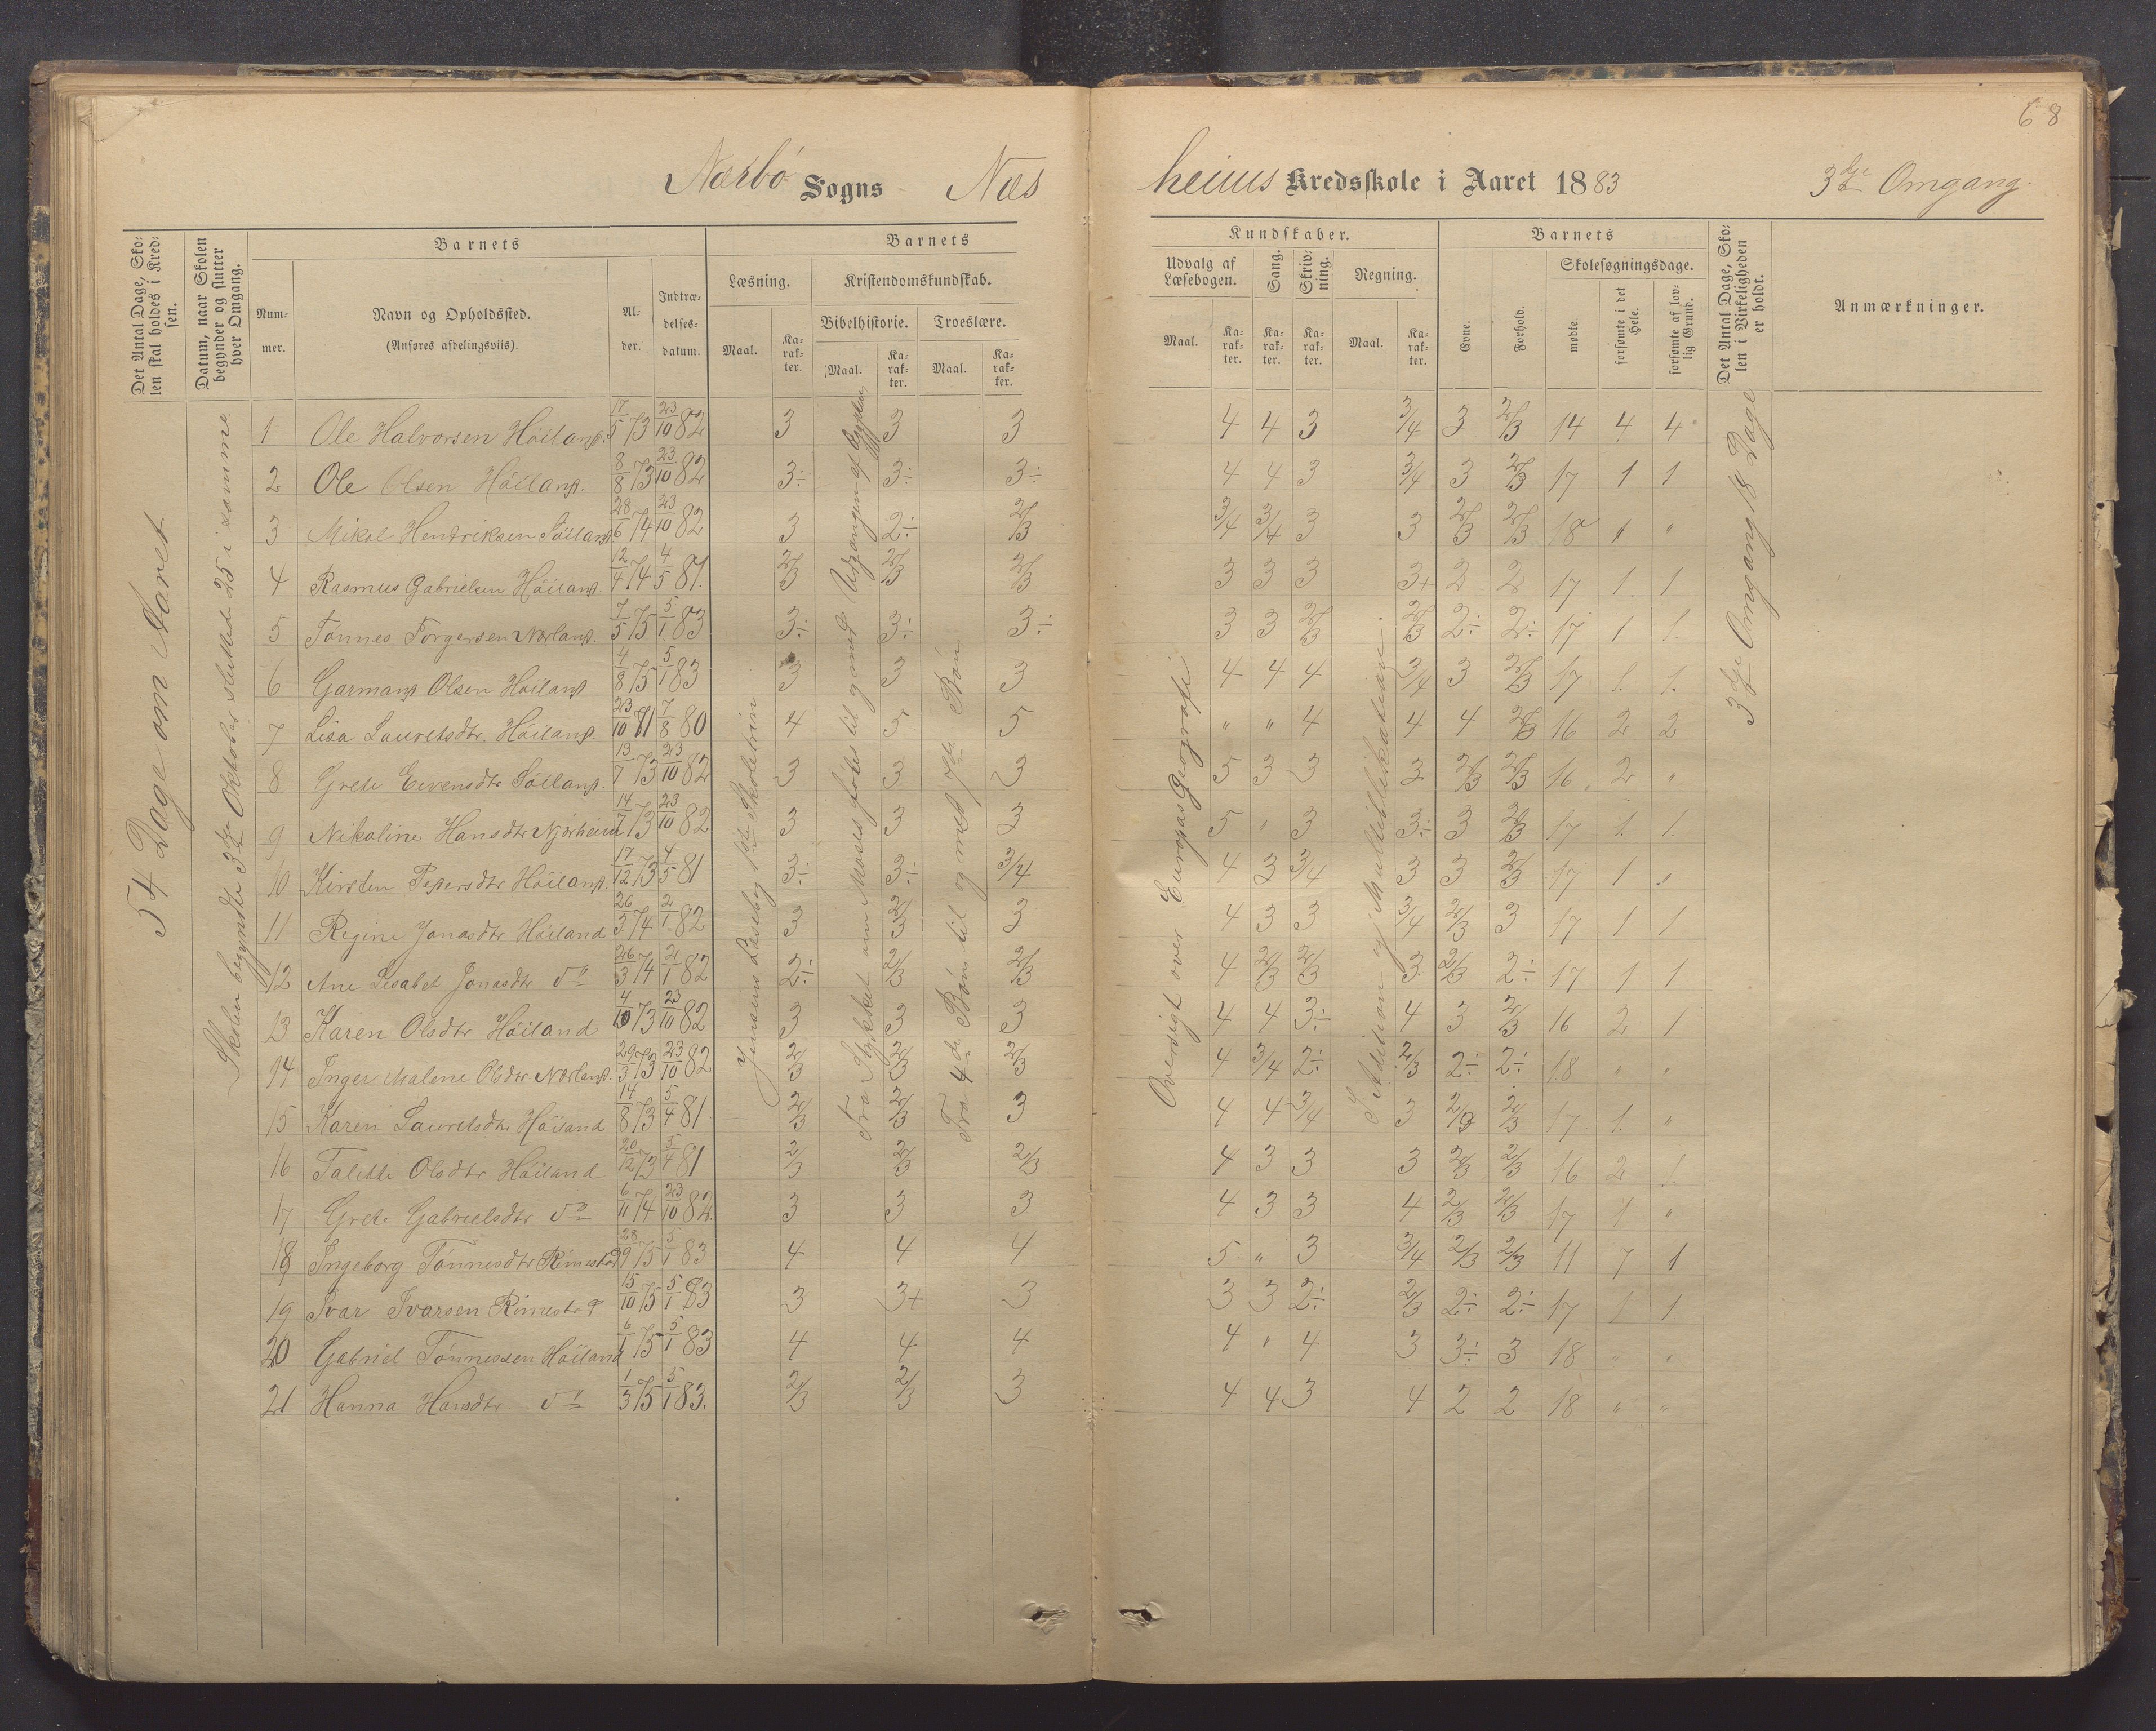 68
Nærbö Sogns Næs
heims Kredsskole i Aaret 1883 3die Omgang.
Det Antal Dage, Skolen skal holdes i Kredsen.
Datum, naar Skolen begynder og slutter hver Omgang.
Barnets
Nummer.
Navn og Opholdssted.
(Anføres afdelingsviis).
Alder.
Indtrædelsesdatum.
Barnets
Læsning.
Maal.
Karakter.
Kristendomskundskab.
Bibelhistorie.
Maal.
Karakter.
Troeslære.
Maal.
Karakter.
Kundskaber.
Udvalg af Læsebogen.
Maal.
Karakter.
Sang.
Karakter.
Skrivning.
Karakter.
Regning.
Maal.
Karakter.
Barnets
Evne.
Forhold.
Skolesøgningsdage.
mødte.
forsømte i det Hele.
forsømte af lovlig Grund.
Det Antal Dage, Skolen i Virkeligheden er holdt.
Anmærkninger.
54 Dage om Aaret
Skolen begyndte 3die Oktober sluttede 25 i samme
Jensens Læsebog 1ste Skoletrin
Fra Stykket om Moses födes til og med Udgangen af Egypten
Fra 4de Bön til og med 7de Bön
Oversigt over Europas Geografi
I Addition og Multiplikation
3die Omgang 18 Dage
1 Ole Halvorsen Höiland. 17/5 73 23/10 82 3 3 3 4 4 3 3/4 3 2/3 14 4 4
2 Ole Olsen Höiland. 8/8 73 23/10 82 3÷ 3÷ 3÷ 4 4 3 3/4 3 2/3 17 1 1
3 Mikal Hendriksen Söiland 28/6 74 23/10 82 3 2÷ 2/3 3/4 3/4 3 3 2/3 2/3 18 " "
4 Rasmus Gabrielsen Höiland. 12/4 74 4/5 81. 2/3 2/3 2/3 3 3 3 3+ 2 2 17 1. 1
5 Tönnes Torgersen Nærland. 7/5 75 5/1 83 3÷ 3÷ 3÷ 3 3 2/3 2/3 2÷ 2÷ 17 1 1.
6 Garmand Olsen Höiland 4/8 75 5/1 83 3 3 3 4 4 4 3/4 3 2/3 17 1. 1.
7 Lisa Lauretsdtr. Höiland. 23/10 71 7/8 80 4 5 5 " " 4 4 4 2/3 16 2 2
8 Grete Eevensdtr Söiland. 13/7 73 23/10 82 3 3 3 5 3 3 3 2/3 2/3 16 2 "
9 Nikoline Hansdtr Njærheim 14/7 73 23/10 82 3 3 3 5 " 3 3÷ 3 2/3 17 1. 1.
10 Kirsten Pedersdtr Höiland. 17/12 73 4/5 81 3÷ 3÷ 3/4 4 3 3/4 3 3 2/3 17 1 "
11 Regine Jonasdtr Höiland 26/3 74 2/1 82 3 2/3 3 4 3 3 3/4 2/3 3 17 1 1
12 Ane Lisabet Jonasdtr do 26/3 74 2/1 82 2÷ 2/3 2/3 4 2/3 2/3 3 2/3 2÷ 17 1 1
13 Karen Olsdtr Höiland 4/10 73 23/10 82 3 3 3 4 4 3÷ 4 3 2/3 16 2 1
14 Inger Malene Olsdtr Nærland. 29/3 73 23/10 82 2/3 2/3 2/3 4 3/4 2÷ 2/3 2÷ 2÷ 18 " "
15 Karen Lauretsdtr Höiland 14/8 73 5/4 81 2/3 2/3 3 4 4 3/4 3 2/3 2/3 17 1. "
16 Talette Olsdtr Höiland 20/12 73 5/4 81 2/3 2/3 2/3 4 3 3 3 2/3 2/3 16 2 1.
17 Grete Gabrielsdtr do 6/11 74 23/10 82. 3 3 3 4 3 3 4 2/3 2/3 17 1 "
18 Ingeborg Tönnesdtr Rimestad 28/9 75 5/1 83 4 4 4 5 " 3 3/4 2/3 2/3 11 7 1
19 Ivar Ivarsen Rimestad 15/10 75 5/1 83 3 3+ 3 3 3 2÷ 2/3 2÷ 2÷ 17 1 1
20 Gabriel Tönnessen Höiland 6/1 75 5/1 83 4 4 4 4 " 4 3 3÷ 3 18 " "
21 Hanna Hansdtr do 1/3 75 5/1 83. 2/3 2/3 3 4 4 3 4 2 2 18 " "